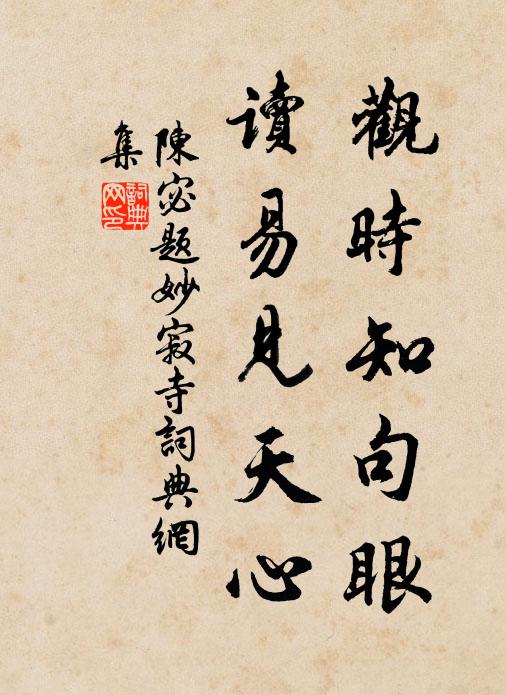 觀時知句眼
讀易見天心
陳宓題妙寂寺詞典網
集
詞典網印